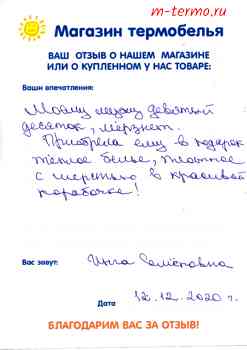 m-termo.ru
Магазин термобелья
ВАШ ОТЗЫВ О НАШЕМ МАГАЗИНЕ
ИЛИ О КУПЛЕННОМ У НАС ТОВАРЕ:
Ваши впечатления:
Моему мужу девятый
десяток, мёрзнет.
Приобрела ему в подарок
теплое белье, плотное
с шерстью в красивой
коробочке!
Вас зовут: Инга Семёновна
Дата 12.12.2020 г.
БЛАГОДАРИМ ВАС ЗА ОТЗЫВ!